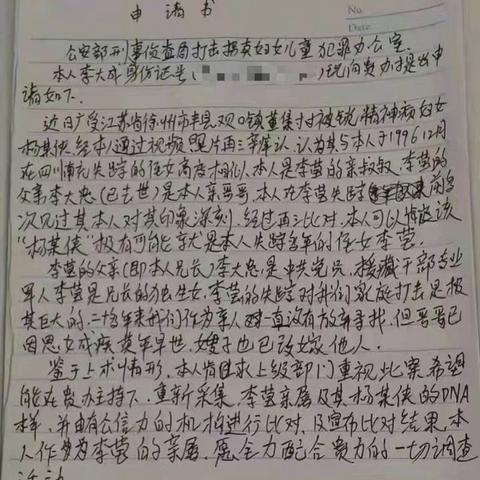 申请书
No.
Date
公安部刑事侦查局打击拐卖妇女儿童犯罪办公室:
本人李大成身份证号( )现向贵办提出申
请如下.
近日广受江苏省徐州市丰县欢口镇董集村被锁精神病妇女
杨某侠经本人通过视频照片再三辨认,认为其与本人于1996 12月
在四川南充失踪的侄女高度相似.本人是李莹的亲叔叔.李莹的
父亲李大忠(已去世)是本人亲哥哥.本人在李莹失踪 前多
次见过其本人对其印象深刻.经过再三比对.本人可以肯定该
"杨某侠"极有可能就是本人失踪多年的侄女李莹.
李莹的父亲(即本人兄长)李大忠,是中共党员,援藏干部专业
军人李莹是兄长的独生女.李莹的失踪对我们家庭打击是极
其巨大的.二十多年来我们作为亲人 一直没有放弃寻找.但哥哥已
因思女成疾莫年早世,嫂子也已改嫁他人.
鉴于上术情形.本人肯求上级部门重视此案.希望
能在贵办主持下.重新采集.李莹亲属及其杨某侠的DNA
样,并由有公信力的机构进行比对.及宣布比对结果.本
人作为李莹的亲属.愿全力配合贵方的一切调查
活动.